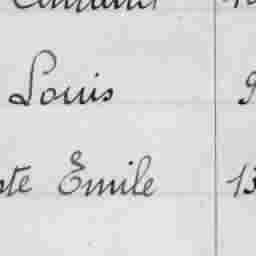 Louis 9
ste Emile 13